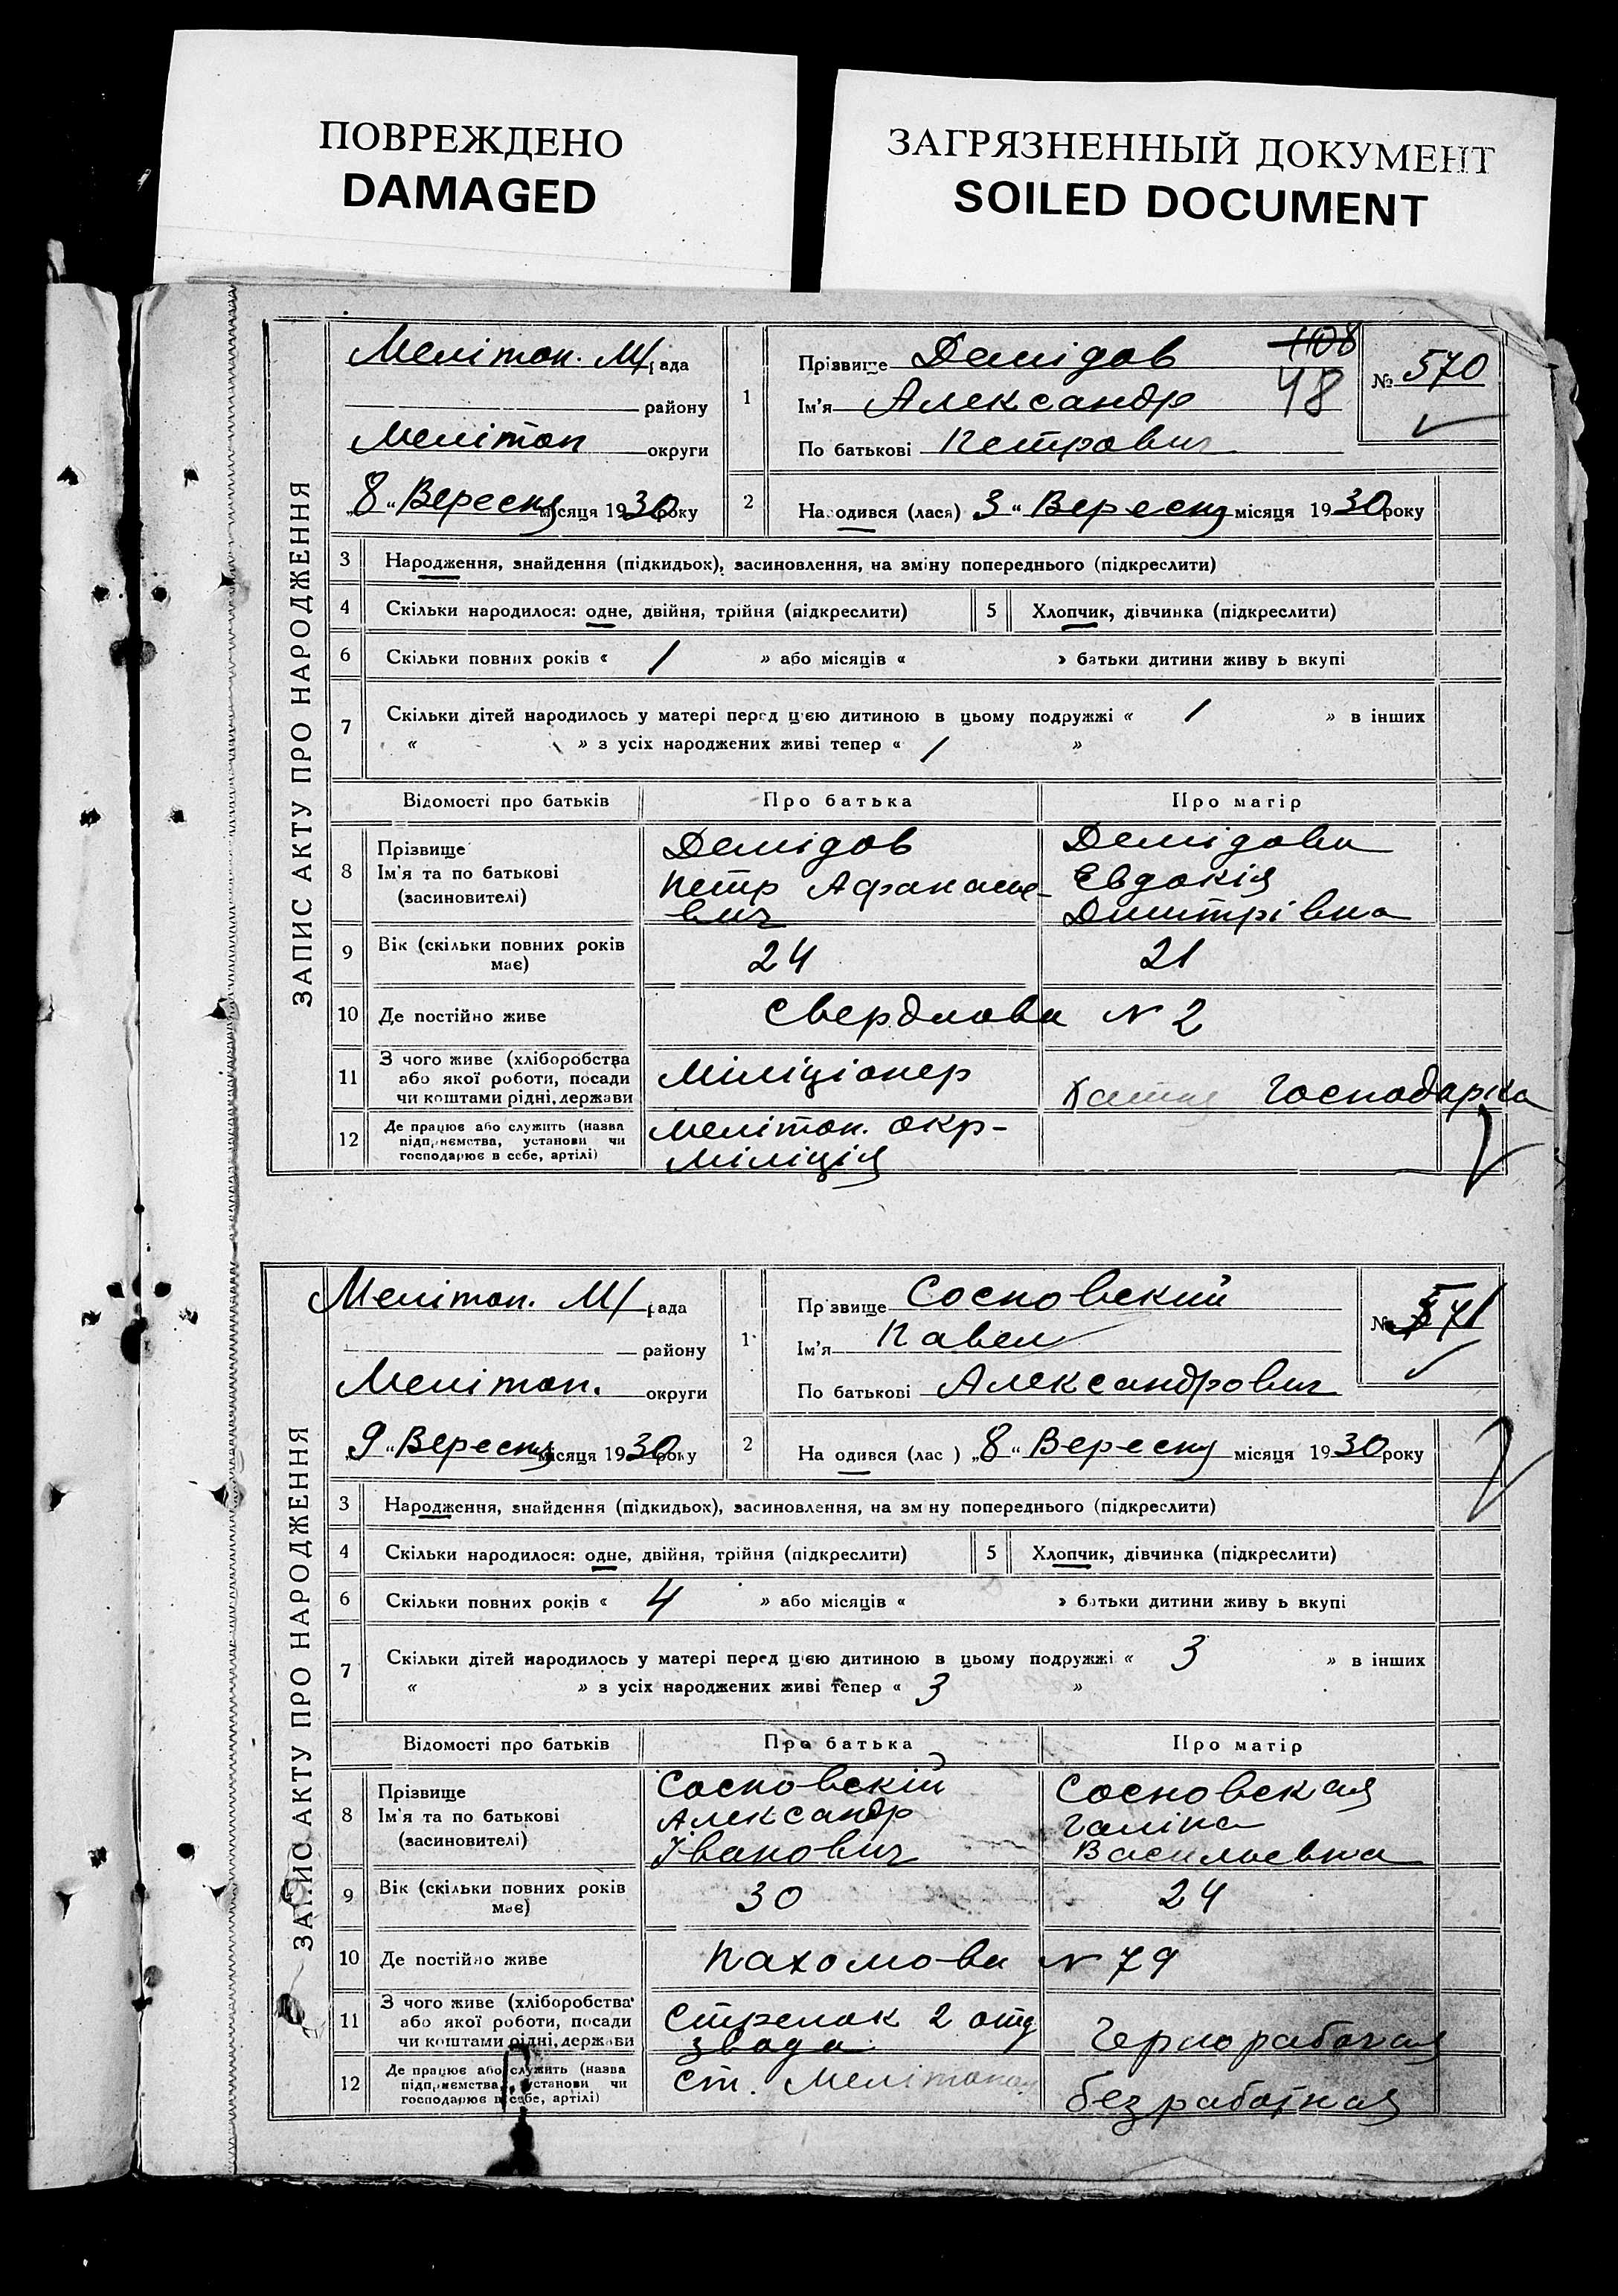 ПОВРЕЖДЕНО
DAMAGED
ЗАГРЯЗНЕННЫЙ ДОКУМЕНТ
SOILED DOCUMENT
ЗАПИС АКТУ ПРО НАРОДЖЕННЯ
Мелітоп. М/рада
району
Мелітоп округи
„8“ Вересня місяця 1930 року
1
Прізвище Демідов
Ім'я Александр
По батькові Петрович
1108
48
№ 570
2 Народився (лася) 3 “ Вересня місяця 1930 року
3 Народження, знайдення (підкидьок), засиновлення, на зміну попереднього (підкреслити)
4 Скільки народилося: одне, двійня, трійня (підкреслити) 5 Хлопчик, дівчинка (підкреслити)
6 Скільки повних років « 1 » або місяців « » батьки дитини живу ь вкупі
7 Скільки дітей народилось у матері перед цією дитиною в цьому подружжі « 1 » в інших
« » з усіх народжених живі тепер « 1 »
Відомості про батьків Про батька Про матір
8 Прізвище
Ім'я та по батькові
(засиновителі)
Демідов
Петр Афанасье-
вич
Демідова
Евдокія
Дмитрівна
9 Вік (скільки повних років
має)
24 21
10 Де постійно живе Свердлова N 2
11 З чого живе (хліборобства
або якої роботи, посади
чи коштами рідні, держави
Міліціонер
Господарка
12 Де працює або служить (назва
підприємства, установи чи
господарює в себе, артілі)
Мелітоп. окр-
міліція
ЗАПИС АКТУ ПРО НАРОДЖЕННЯ
Мелітоп. М/рада
району
Мелітоп. округи
„9“ Вересня місяця 1930 року
1
Прізвище Сосновский
Ім'я Павел
По батькові Александрович
№ 571
2 Народився (лас ) „8“ Вересня місяця 1930 року
3 Народження, знайдення (підкидьок), засиновлення, на зміну попереднього (підкреслити)
4 Скільки народилося: одне, двійня, трійня (підкреслити) 5 Хлопчик, дівчинка (підкреслити)
6 Скільки повних років « 4 » або місяців « » батьки дитини живу ь вкупі
7 Скільки дітей народилось у матері перед цією дитиною в цьому подружжі « 3 » в інших
« » з усіх народжених живі тепер « 3 »
Відомості про батьків Про батька Про матір
8 Прізвище
Ім'я та по батькові
(засиновителі)
Сосновскій
Александр
Іванович
Сосновская
Галіна
Васильевна
9 Вік (скільки повних років
має)
30 24
10 Де постійно живе Пахомова N 79
11 З чого живе (хліборобства
або якої роботи, посади
чи коштами рідні, держави
Стрелок 2 отд
звода
Чернорабочая
12 Де працює або служить (назва
підприємства, установи чи
господарює в себе, артілі)
ст. Мелітополь
безработная